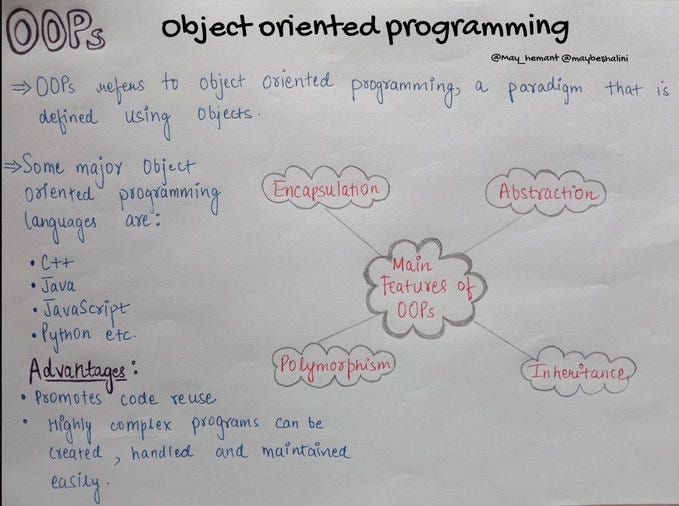 OOPs
object oriented programming
@May_hemant @maybeshalini
⇒ OOPs refers to object oriented programming, a paradigm that is
defined using objects.
⇒ Some major object
oriented programming
languages are:
• C++
• Java
• JavaScript
• Python etc.
Advantages:
• Promotes code reuse
• Highly complex programs can be
created, handled and maintained
easily.
Encapsulation
Abstraction
Main
Features of
OOPs
Polymorphism
Inheritance